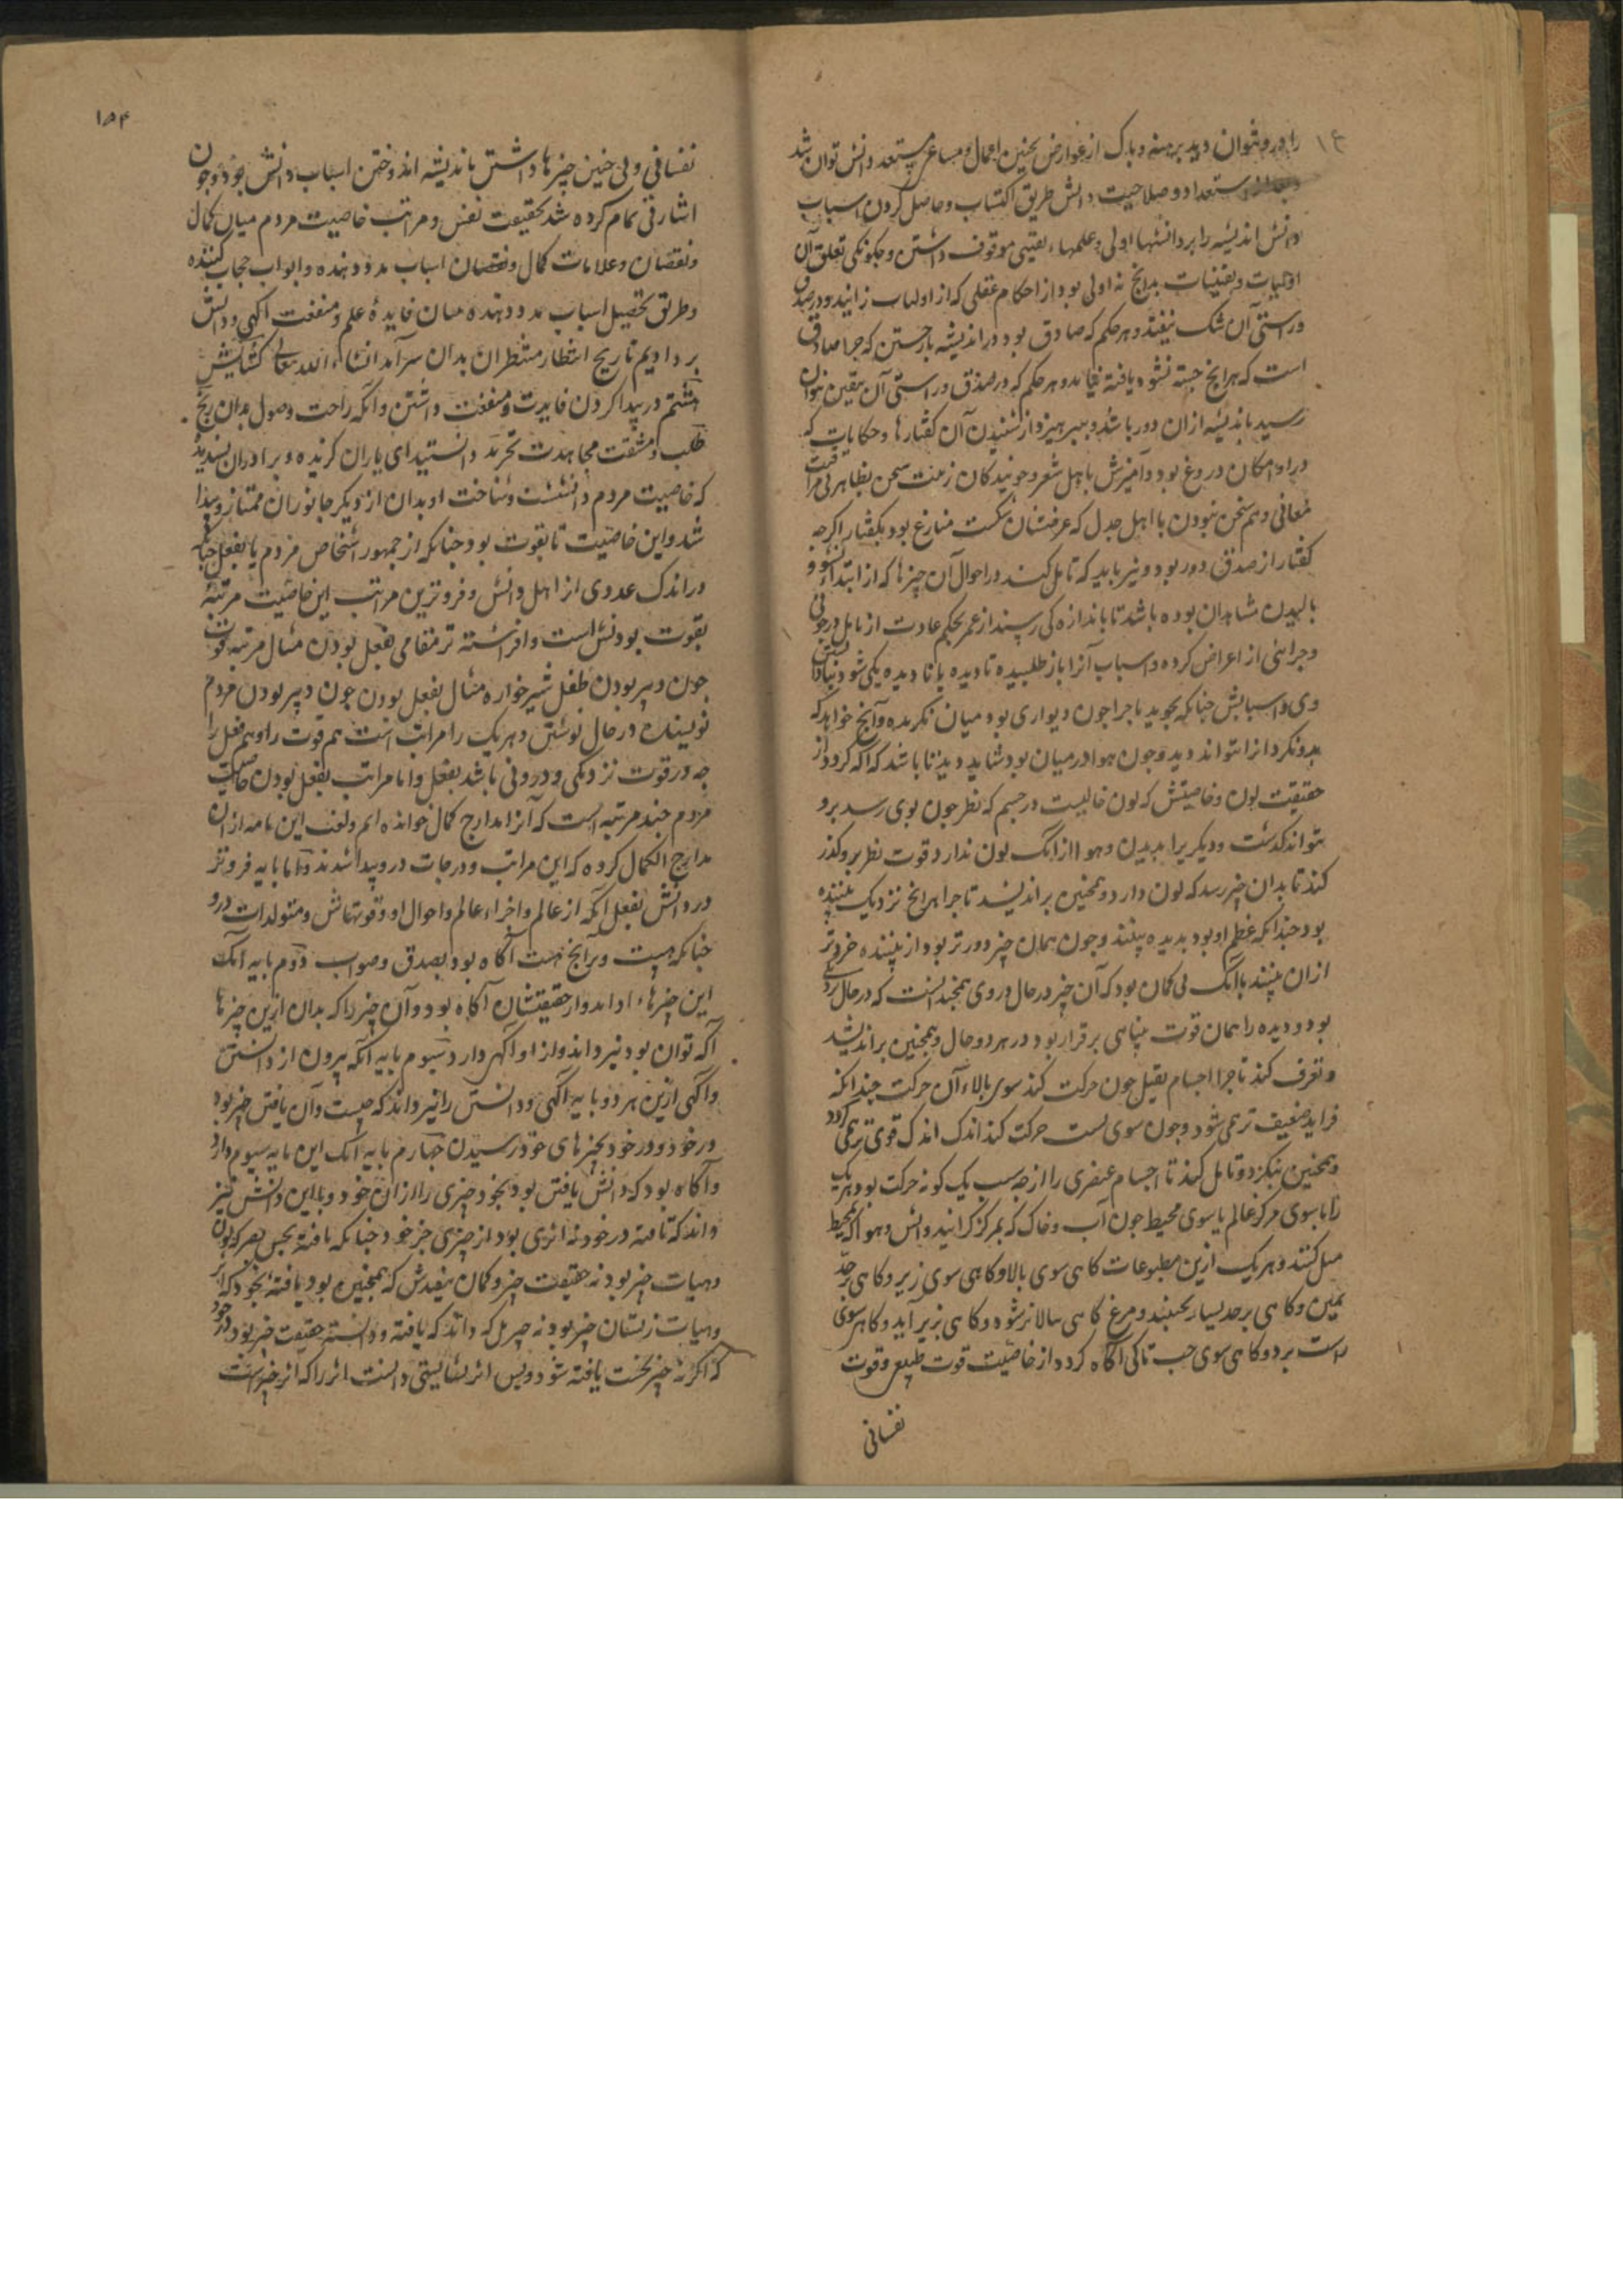 را درو نتوان دید برهنه و پاک از عوارض بچنین اعمال و مساعی مستعد دانش توان شد
استعداد و صلاحیت دانش طریق اکتساب و حاصل کردن اسباب
دانش اندیشه را بر دانشها اولی و علمهاء یقینی موقوف داشتن و چگونگی تعلق آن
اولیات و یقینیات بدانچ نه اولی بود از احکام عقلی که از اولیات زایند و در صدق
و راستی آن شک نیفتد و هر حکم که صادق بود در اندیشه باز جستن که چرا صادق
است که هرانچ جسته نشود یافته نیاید و هر حکم که در صدق و راستی آن بیقین نتوان
رسید باندیشه ازان دور باشد و بپرهیزد از شنیدن آن گفتارها و حکایات که
درو امکان دروغ بود و آمیزش با اهل شعر و جویندگان زینت سخن بظاهر بی مراقبت
معانی و هم سخن نبودن با اهل جدل که غرضشان شکست منازع بود بگفتار اگرچه
گفتار از صدق دور بود و نیز باید که تامل کند در احوال آن چیزها که از ابتداء نشو و
بالیدن مشاهدان بوده باشد تا باندازه کی رسیند از عمر بحکم عادت از تامل در چونی
و چرایی از اعراض کرده و اسباب آنرا باز طلبیده تا دیده با نادیده یکی شود و بنادانستن
وی و اسبابش چنانکه بجوید تا چرا چون دیواری بود میان نگرنده و آنچ خواهد که
بدو نگرد آنرا نتواند دید و چون هوا در میان بود شاید دیدن تا باشد که آگه گردد از
حقیقت لون و خاصیتش که لون حالیست در جسم که نظر چون بوی رسد برو
نتواند گذشت و دیگر را بدیدن و هوا از آنک لون ندارد قوت نظر برو گذر
کند تا بدان چیز رسد که لون دارد و همچنین براندیشد تا چرا هرانچ نزدیک بیننده
بود چندانکه عظم او بود بدیده بیند و چون همان چیز دورتر بود از بیننده خردتر
ازان بیند با آنک بی گمان بود که آن چیز در حال دوری همچندانست که در حال نزدیکی
بود و دیده را همان قوت بینایی برقرار بود در هر دو حال و همچنین براندیشد
و تعرف کند تا چرا اجسام ثقیل چون حرکت کند سوی بالاء آن حرکت چندانکه
فزاید ضعیف تر همی شود و چون سوی پست حرکت کند اندک اندک قوی تر همی گردد
و همچنین بنگرد و تامل کند تا اجسام عنصری را از چه سبب یک گونه حرکت بود هریک
را یا سوی مرکز عالم یا سوی محیط چون آب و خاک که بمرکز گرایند و آتش و هوا که بمحیط
میل کنند و هریک ازین مطبوعات گاهی سوی بالا و گاهی سوی زیر و گاهی بر حد
یمین و گاهی بر حد یسار بجنبند و مرغ گاهی ببالا برشود و گاهی بزیر آید و گاهی سوی
راست برد و گاهی سوی چپ تا کی آگاه گردد از خاصیت قوت طبیعی و قوت
نفسانی
۱۵۴
نفسانی ولی چنین چیزها داشتن باندیشه اندوختن اسباب دانش بود و چون
اشارتی تمام کرده شد بحقیقت نفس و مراتب خاصیت مردم میان کمال
و نقصان و علامات کمال و نقصان اسباب مدد دهنده و ابواب حجاب کننده
و طریق تحصیل اسباب مدد دهنده میان فایدهٔ علم و منفعت آگهی و دانش
بر دادیم تا رنج انتظار منتظران بدان سرآید انشاء الله تعالی گشایش
هشتم در پیدا کردن فایدت و منفعت داشتن و آگه راحت وصول بدان رنج
طلب و مشقت مجاهدت بخرد دانستید ای یاران گزیده و برادران پسندیده
که خاصیت مردم دانشست و شناخت او بدان از دیگر جانوران ممتاز و پیدا
شد و این خاصیت تا بقوت بود چنانکه از جمهور اشخاص مردم یا بفعل چنانکه
در اندک عددی از اهل دانش و فروترین مراتب این خاصیت مرتبهٔ
بقوت بودنش است و افراشته تر مقامی بفعل بودن مثال مرتبه قوت
چون دبیر بودن طفل شیرخواره مثال بفعل بودن چون دبیر بودن مردم
نویسنده در حال نوشتن و هریک را مراتب است هم قوت را و هم فعل را
چه در قوت نزدیکی و دوری باشد بفعل و اما مراتب بفعل بودن خاصیت
مردم چند مرتبه است که آنرا مدارج کمال خوانده ایم و لقب این نامه ازان
مدارج الکمال کرده که این مراتب و درجات درو پیدا شدند و اما پایه فروتر
در دانش بفعل آنکه از عالم و اجزاء عالم و احوال او و قوتهاش و متولدات درو
چنانکه هست و برانچ هست آگاه بود بصدق و صواب دوم پایه آنک
این چیزهاء را داند و از حقیقتشان آگاه بود و آن چیز را که بدان ازین چیزها
آگه توان بود نیز داند و از او آگهی دارد سیوم پایه آنکه بیرون از دانستن
و آگهی ازین هر دو پایه آگهی و دانستن را نیز داند که چیست و آن یافتن چیز بود
در خود و در خود بچیزهای خود رسیدن چهارم پایه آنک این پایه سیوم دارد
و آگاه بود که دانش یافتن بود بخود چیزی را از آن خود و با این دانش نیز
داند که یافته در خود نه اثری بود از چیزی جز خود چنانکه یافته بحس بصر که لون
و هیات چیز بود نه حقیقت چیز و گمان نیفتدش که همچنین بود یافته بخود که اثر
و هیات زیستان چیز بود نه چیز بل که داند که یافته و دانسته حقیقت چیز بود در خود
که اگر نه چیز نخست یافته شود و پس اثر نشایستی دانست اثر را که اثر چیزست